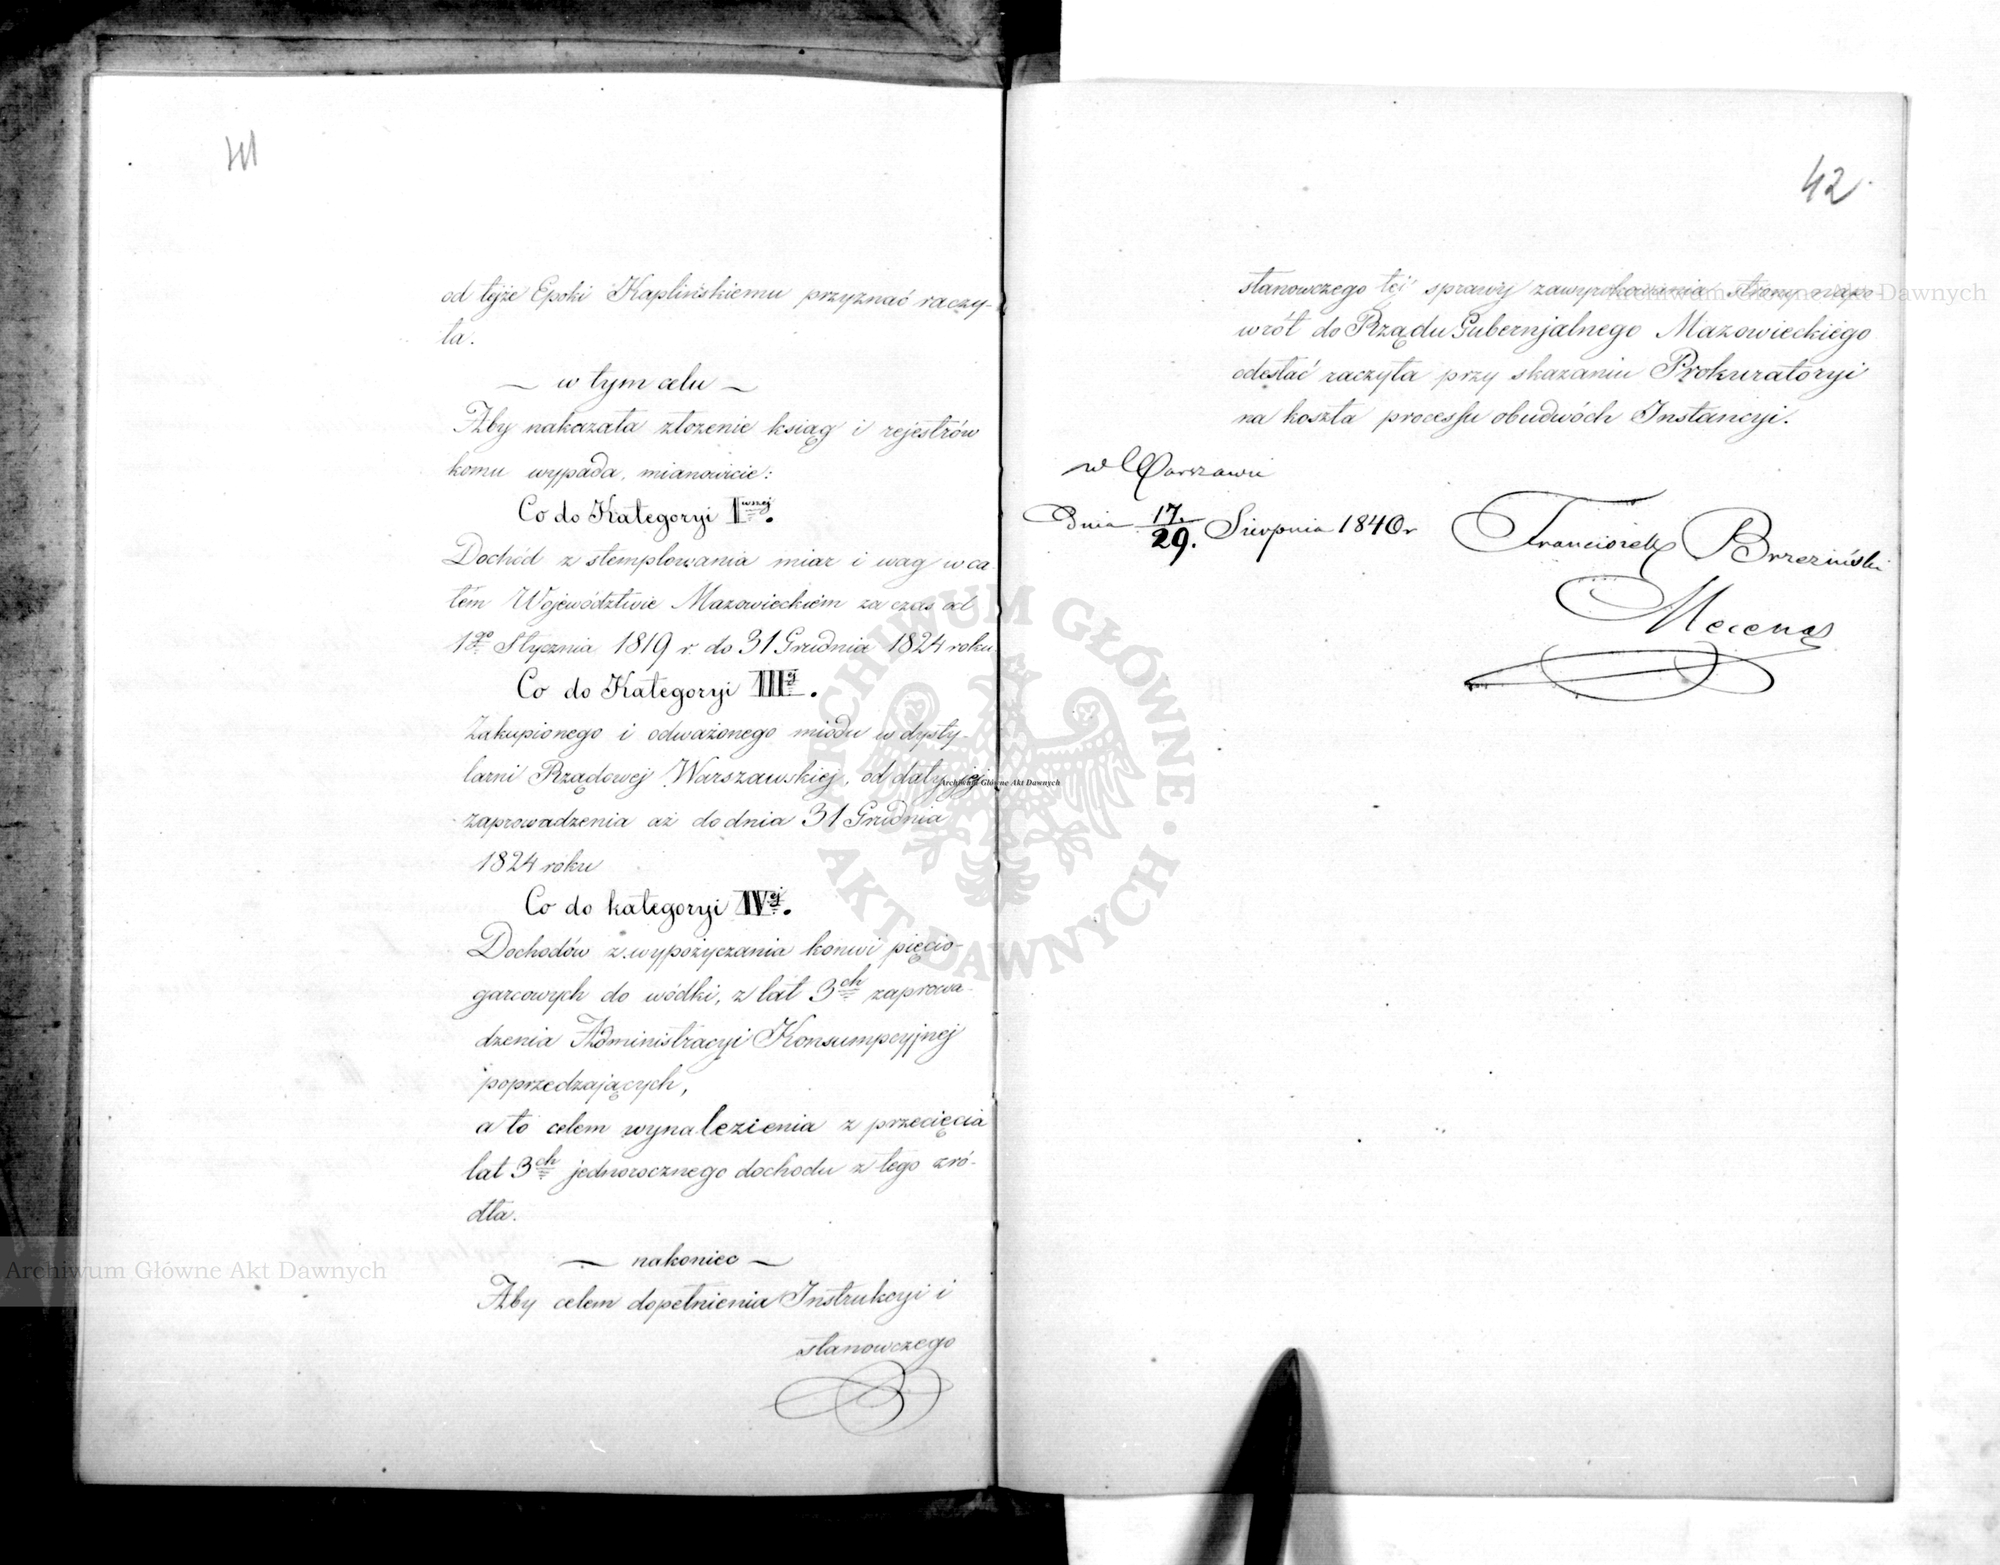 41
od tejże Epoki Kaplińskiemu przyznać raczy-
ła.
— w tym celu —
Aby nakazała złożenie ksiąg i rejestrów
komu wypada, mianowicie:
Co do Kategoryi I wszej.
Dochód z stemplowania miar i wag w ca-
łém Województwie Mazowieckiém za czas od
1go Stycznia 1819 r. do 31 Grudnia 1824 roku.
Co do Kategoryi IIIej.
Zakupionego i odważonego miodu w dysty-
larni Rządowej Warszawskiej, od daty jej
zaprowadzenia aż do dnia 31 Grudnia
1824 roku
Co do kategoryi IVej.
Dochodów z wypożyczania konwi pięcio-
garcowych do wódki, z lat 3ch zaprowa-
dzenia Administracyi Konsumpcyjnej
poprzedzających,
a to celem wynalezienia z przecięcia
lat 3ch jednorocznego dochodu z tego źró-
dła.
— nakoniec —
Aby celem dopełnienia Instrukcyi i
stanowczego
42
stanowczego téj sprawy zawyrokowania strony napo-
wrót do Rządu Gubernjalnego Mazowieckiégo
odesłać raczyła przy skazaniu Prokuratoryi
na koszta processu obudwóch Instancyi.
w Warszawie
Dnia 17./29. Sierpnia 1840 r
Franciszek Brzeziński
Mecenas
ARCHIWUM GŁÓWNE AKT DAWNYCH
Archiwum Główne Akt Dawnych
Archiwum Główne Akt Dawnych
Archiwum Główne Akt Dawnych